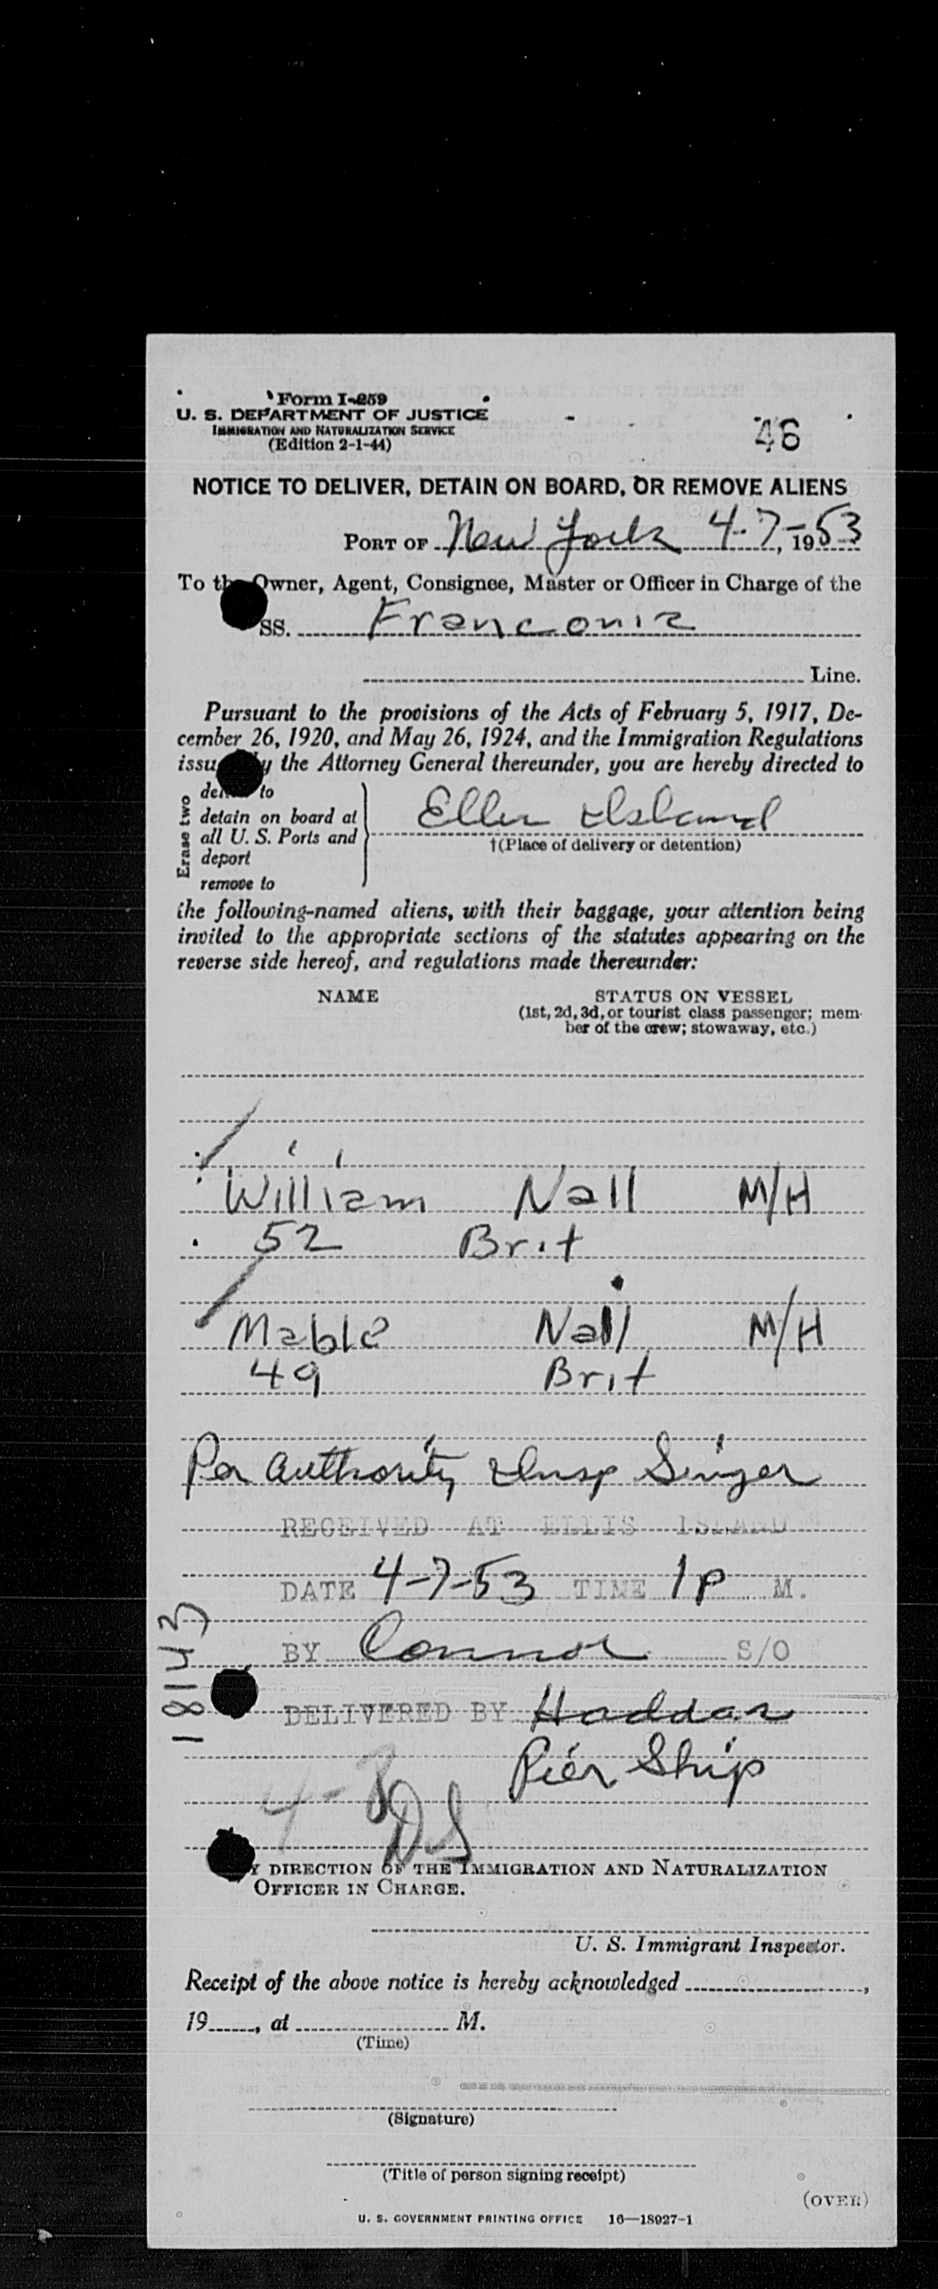 Form I-259
U. S. DEPARTMENT OF JUSTICE
IMMIGRATION AND NATURALIZATION SERVICE
(Edition 2-1-44)
46
NOTICE TO DELIVER, DETAIN ON BOARD, OR REMOVE ALIENS
PORT OF New York 4-7-, 1953
To the Owner, Agent, Consignee, Master or Officer in Charge of the
SS. Franconia
Line.
Pursuant to the provisions of the Acts of February 5, 1917, De-
cember 26, 1920, and May 26, 1924, and the Immigration Regulations
issued by the Attorney General thereunder, you are hereby directed to
Erase two
to
detain on board at
all U. S. Ports and
deport
remove to
Ellis Island
†(Place of delivery or detention)
the following-named aliens, with their baggage, your attention being
invited to the appropriate sections of the statutes appearing on the
reverse side hereof, and regulations made thereunder:
NAME STATUS ON VESSEL
(1st, 2d, 3d, or tourist class passenger; mem-
ber of the crew; stowaway, etc.)
William Nall M/H
52 Brit
Mable Nall M/H
49 Brit
Per authority Insp Singer
RECEIVED AT ELLIS ISLAND
DATE 4-7-53 TIME 1P M.
BY Connor S/O
18143
DELIVERED BY Haddar
Pier Ship
4-8
DS
BY DIRECTION OF THE IMMIGRATION AND NATURALIZATION
OFFICER IN CHARGE.
U. S. Immigrant Inspector.
Receipt of the above notice is hereby acknowledged ,
19 , at M.
(Time)
(Signature)
(Title of person signing receipt)
(OVER)
U. S. GOVERNMENT PRINTING OFFICE 16—18927-1